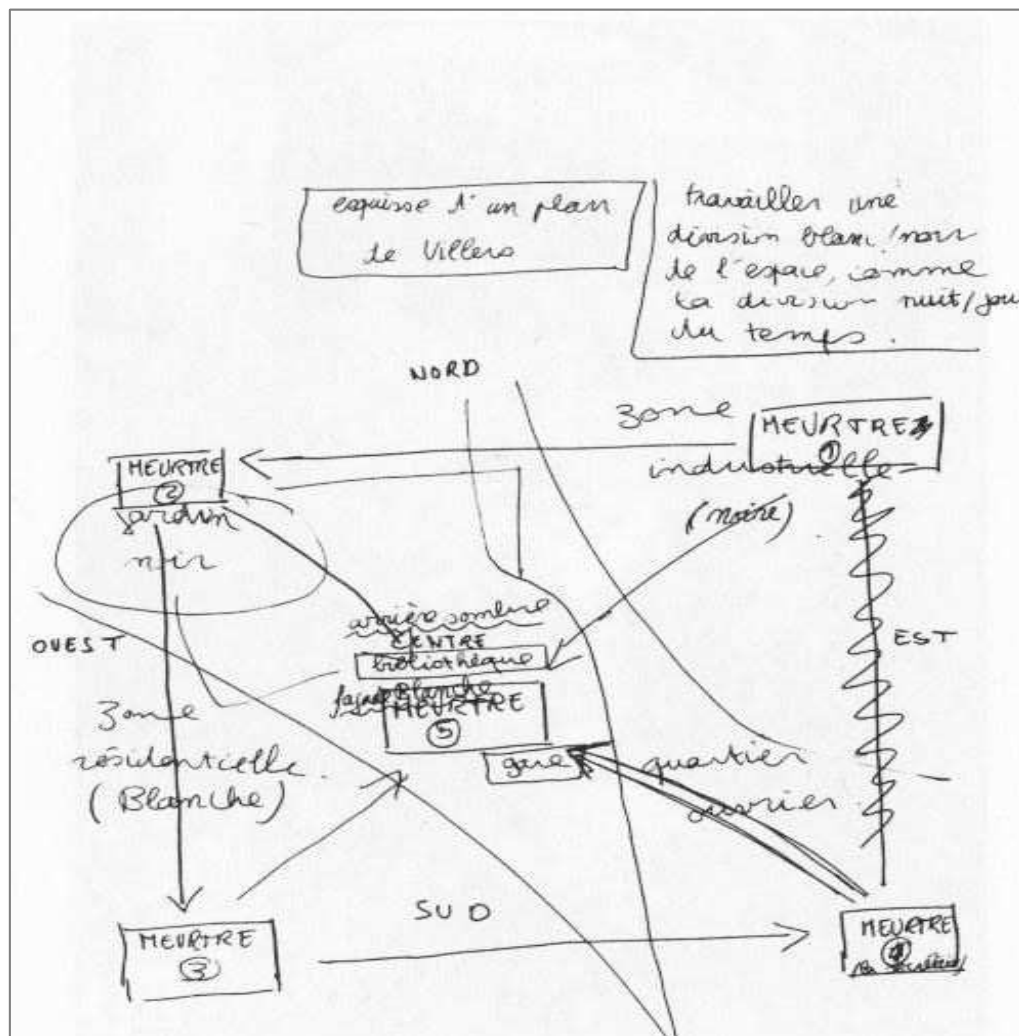 esquisse d'un plan
de Villers
travailler une
division blanc/noir
de l'espace, comme
la division nuit/jou
du temps.
NORD
zone
MEURTRE
1
industrielle
(noire)
MEURTRE
2
jardin
noir
OUEST
EST
arrière sombre
CENTRE
bibliothèque
façade blanche
MEURTRE
5
gare
zone
résidentielle
(Blanche)
quartier
ouvrier
SUD
MEURTRE
3
MEURTRE
4